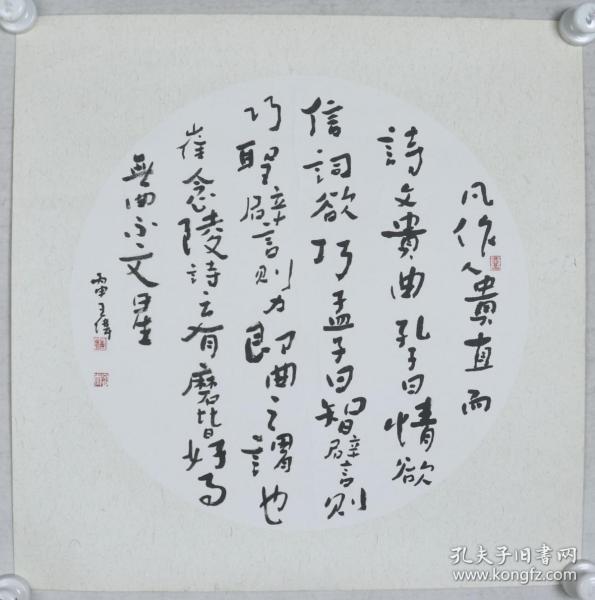 凡作人貴直而
詩文貴曲孔子曰情欲
信詞欲巧孟子曰智譬則
巧聖譬則力即曲之謂也
崔念陵詩云有磨皆好事
無曲不文星
丙申王偉
孔夫子旧书网
www.kongfz.com